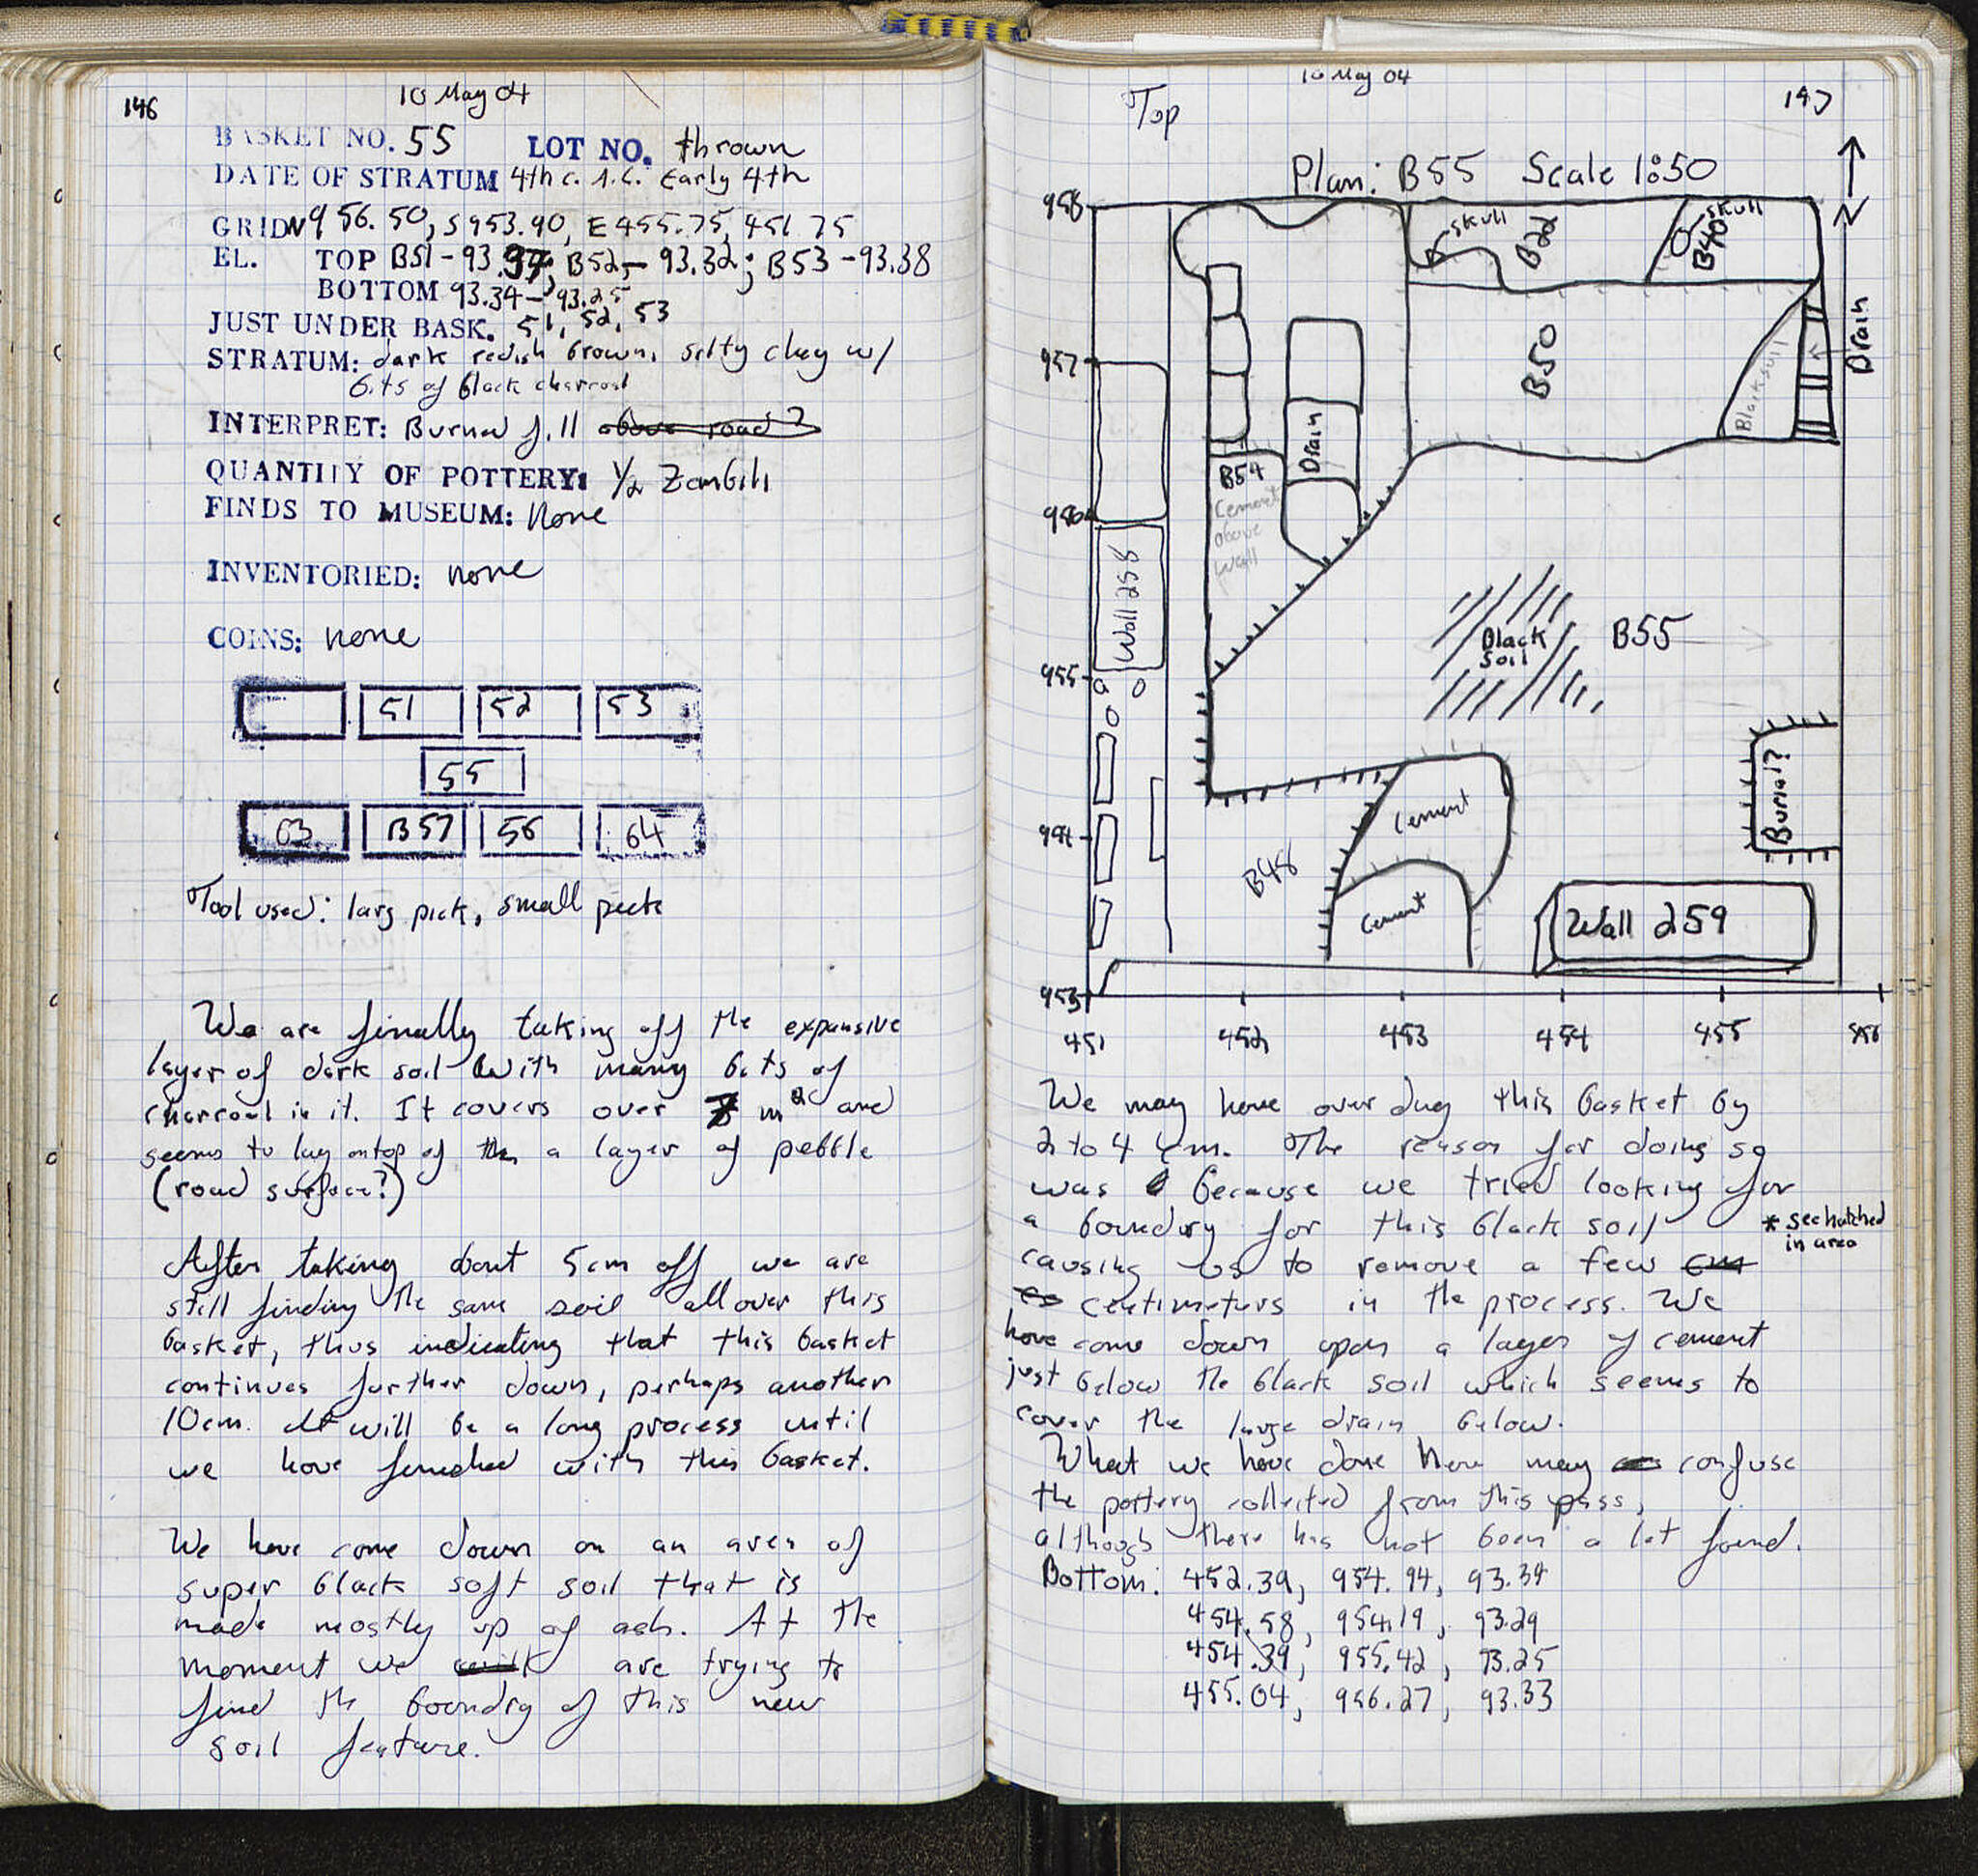 146
10 May 04
BASKET NO. 55 LOT NO. thrown
DATE OF STRATUM 4th c. A.C. Early 4th
GRID N956.50, S953.90, E455.75, 451.75
EL. TOP B51-93.37, B52-93.32; B53-93.38
BOTTOM 93.34-93.25
JUST UNDER BASK. 51, 52, 53
STRATUM: dark redish brown, silty clay w/
bits of black charcoal
INTERPRET: Burned fill above road?
QUANTITY OF POTTERY: 1/2 Zembili
FINDS TO MUSEUM: None
INVENTORIED: none
COINS: none
51 52 53
55
63 B57 56 64
Tool used: larg pick, small pick
We are finally taking off the expansive
layer of dark soil with many bits of
charcoal in it. It covers over m² and
seems to lay ontop of a layer of pebble
(road surface?)
After taking about 5cm off we are
still finding the same soil all over this
basket, thus indicating that this basket
continues further down, perhaps another
10cm. It will be a long process until
we have finished with this basket.
We have come down on an area of
super black soft soil that is
made mostly up of ash. At the
moment we are trying to
find the boundry of this new
soil feature.
10 May 04
147
Top
Plan: B55 Scale 1:50
N
958
957
956
955
954
953
451 452 453 454 455 456
skull
B22
skull
B40
Drain
B50
Black soil
Drain
B54
Cement
above
wall
Wall 258
Black
soil
B55
Burial?
Cement
B48
Cement
Wall 259
We may have over dug this basket by
2 to 4 cm. The reason for doing so
was because we tried looking for
a boundry for this black soil
* see hatched
in area
causing us to remove a few cm
centimeters in the process. We
have come down upon a layer of cement
just below the black soil which seems to
cover the large drain below.
What we have done here may confuse
the pottery collected from this pass,
although there has not been a lot found.
Bottom: 452.39, 954.94, 93.34
454.58, 954.19, 93.29
454.39, 955.42, 93.25
455.04, 956.27, 93.33